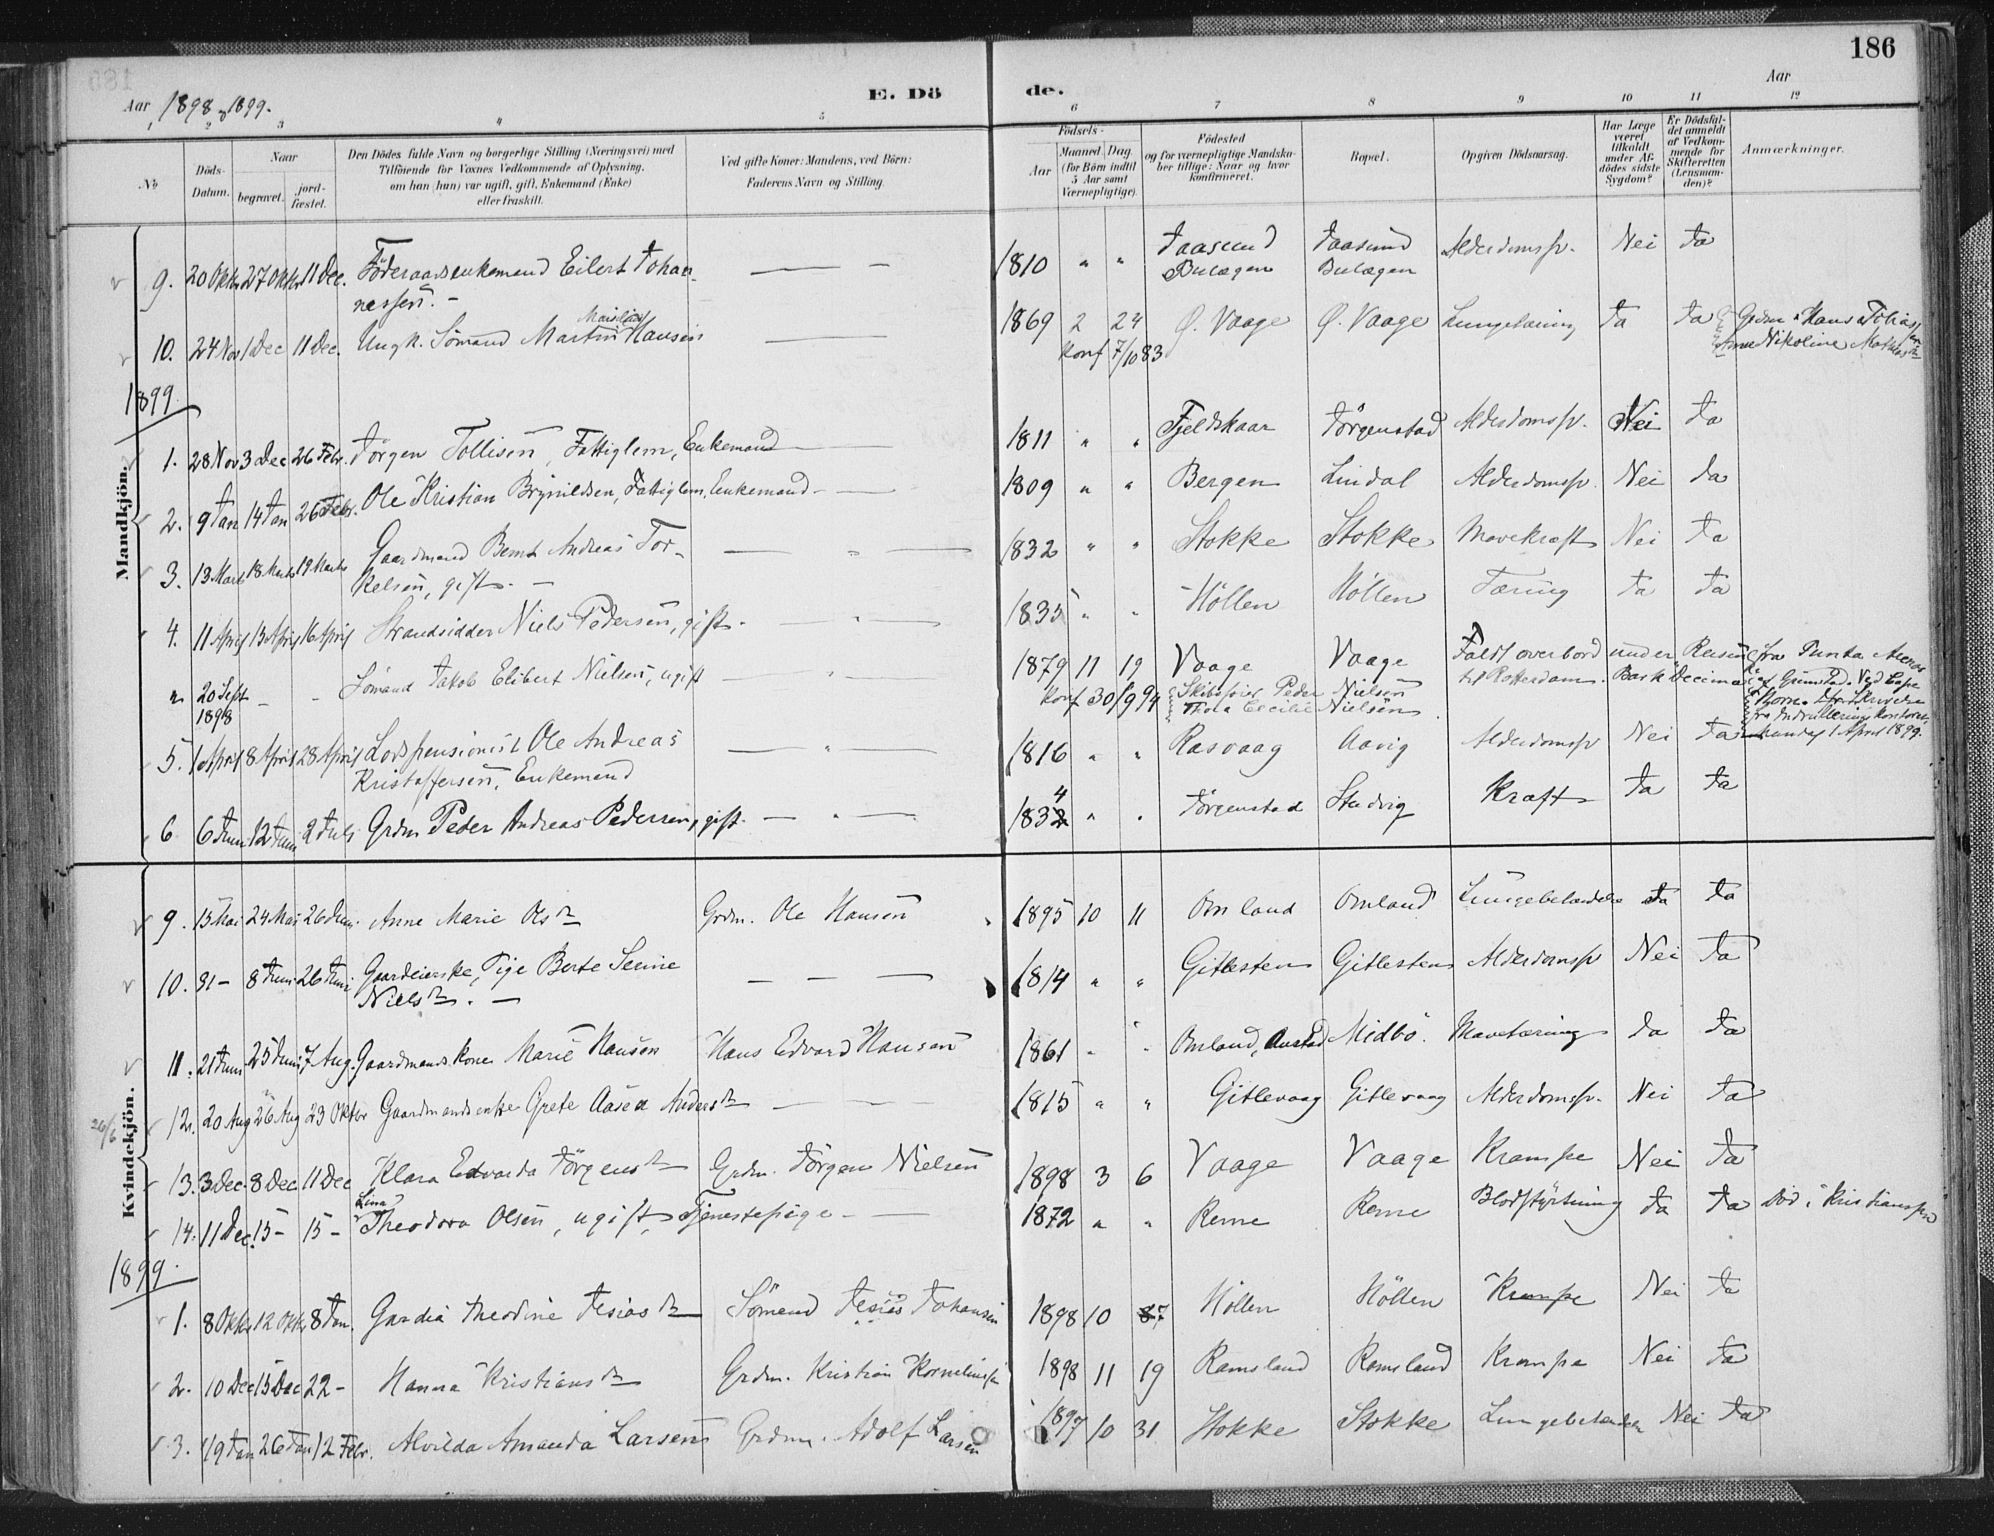 186
Aar 1898 & 1899.
E. Dö de.
Aar
1 2 3 4 5 6 7 8 9 10 11 12
No
Döds-Datum.
Naar
begravet.
jord-fæstet.
Den Dödes fulde Navn og borgerlige Stilling (Næringsvei) med
Tilföiende for Voxnes Vedkommende af Oplysning,
om han (hun) var ugift, gift, Enkemand (Enke)
eller fraskilt.
Ved gifte Koner: Mandens, ved Börn:
Faderens Navn og Stilling.
Födsels-
Aar
Maaned. Dag.
(for Börn indtil
5 Aar samt
Værnepligtige).
Födested
og for værnepligtige Mandska-
ber tillige: Naar og hvor
konfirmeret.
Bopæl.
Opgiven Dödsaarsag.
Har Læge
været
tilkaldt
under Af-
dödes sidste
Sygdom?
Er Dödsfal-
det anmeldt
af Vedkom-
mende for
Skifteretten
(Lensman-
den)?
Anmærkninger.
Mandkjön.
9. 20 Oktr 27 Oktr 11 Dec. Föderaadsenkemand Eilert Johan- — — 1810 " " Jaasund Jaasund Alderdomssv. Nei Ja
nessen. — Bulægen Bulægen
10. 24 Nov 1 Dec 11 Dec. Ungk. Sömand Martin Hansen — 1869 2 24 Ø. Vaage Ø. Vaage Lungetæring Ja Ja Grdm. Hans Tobias
Konf 7/10 83 Anne Nikoline
1899
1. 28 Nov 3 Dec 26 Febr. Jörgen Tollisen, Fattiglem, Enkemand — 1811 " " Fjeldskaar Jörgenstad Alderdomssv. Nei Ja
2. 9 Jan 14 Jan 26 Febr. Ole Kristian Brynildsen, Fattiglem, Enkemand — 1809 " " Bergen Lindal Alderdomssv. Nei Ja
3. 13 Marts 18 Marts 19 Marts Gaardmand Bernt Andreas Tor- — " — 1832 " " Stokke Stokke Mavekræft Nei Ja
kelsen, gift. —
4. 11 April 13 April 16 April Strandsidder Niels Pedersen, gift. — " — 1835 " " Höllen Höllen Tæring Ja Ja
" 20 Sept 1898 — Sömand Jakob Elibert Nielsen, ugift — 1879 11 19 Vaage Vaage Faldt overbord under Reisen fra Punta Arenas
Konf 30/9 94 Skibsfører Peder Nielsen til Rotterdam. Bark Decima af Grimstad. Ved Cape
Thola Cecilie Nielsen Horn.
fra Indrulleringskontoret,
Mandal 1 April 1899.
5. 1 April 8 April 28 April Lodspensionist Ole Andreas — " — 1816 " " Rasvaag Aavig Alderdomssv Nei Ja
Kristoffersen, Enkemand
6. 6 Juni 12 Juni 2 Juli Grdm Peder Andreas Pedersen, gift. — " — 1834 " " Jörgenstad Studvig Kræft Ja Ja
Kvindekjön.
9. 15 Mai 24 Mai 26 Juni Anne Marie Olsdr Grdm. Ole Hansen 1895 10 11 Omland Omland Lungebetændelse Ja Ja
10. 31 — 8 Juni 26 Juni Gaardeierske, Pige Berte Serine — — 1814 " " Gitlesten Gitlesten Alderdomssv Nei Ja
Nielsdr. —
11. 21 Juni 25 Juni 7 Aug. Gaardmandskone Marie Hansen Hans Edvard Hansen 1861 " " Omland, Austad Midbö. Mavetæring Ja Ja
20/6
12. 20 Aug 26 Aug 23 Oktbr Gaardmandsenke Grete Aasea Andersdr — — 1815 " " Gitlevaag Gitlevaag Alderdomssv. Nei Ja
13. 3 Dec. 8 Dec 11 Dec Klara Edvarda Jörgensdr Grdm. Jörgen Nielsen 1898 3 6 Vaage Vaage Krampe Nei Ja
Lina
14. 11 Dec. 15 — 15 — Theodora Olsen, ugift, Tjenestepige — — 1872 " " Reme Reme Blodstyrtning Ja Ja Död i Kristianssand
1899.
1. 8 Oktr 12 Oktr 8 Jan. Gardia Theodine Jesiasdr Sömand Jesias Johansen 1898 10 7 Höllen Höllen Krampe Nei Ja
2. 10 Dec 15 Dec 22 — Hanna Kristiansdr Grdm. Kristian Korneliussen 1898 11 19 Ramsland Ramsland Krampe Nei Ja
3. 19 Jan 26 Jan 12 Febr. Alvilda Amanda Larsen Grdm. Adolf Larsen 1897 10 31 Stokke Stokke Lungebetændelse Nei Ja